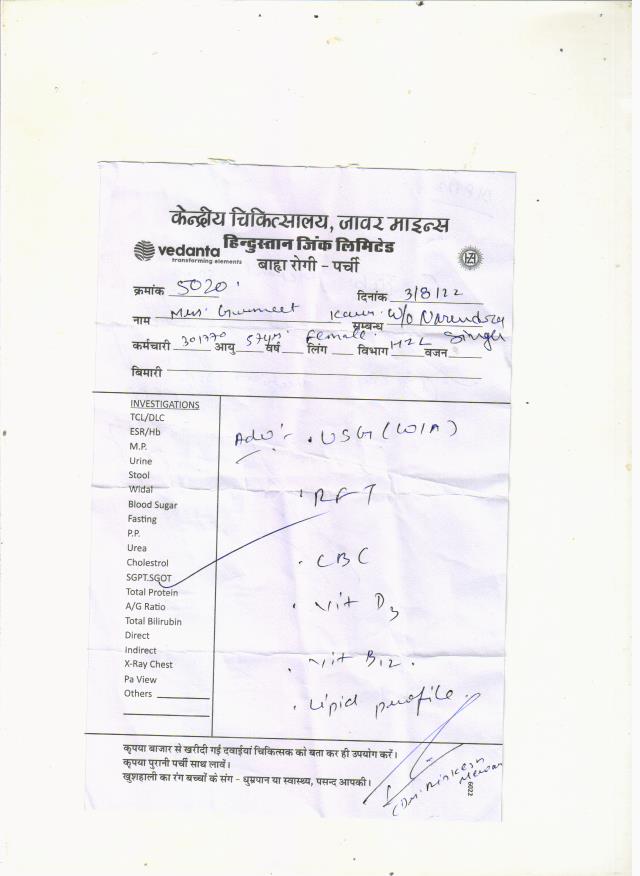 केन्द्रीय चिकित्सालय, जावर माइन्स
vedanta
transforming elements
हिन्दुस्तान जिंक लिमिटेड
HZ
बाह्य रोगी - पर्ची
क्रमांक 5020 दिनांक 3/8/22
नाम Mrs. Gurmeet Kaur सम्बन्ध W/o Narendra Singh
कर्मचारी 301770 आयु 57yrs. वर्ष लिंग Female. विभाग HZL वजन
बिमारी
INVESTIGATIONS
TCL/DLC
ESR/Hb
M.P.
Urine
Stool
Widal
Blood Sugar
Fasting
P.P.
Urea
Cholestrol
SGPT.SGOT
Total Protein
A/G Ratio
Total Bilirubin
Direct
Indirect
X-Ray Chest
Pa View
Others
Adv:- . USG (W/A)
. RFT
. CBC
. Vit D3
. Vit B12.
. Lipid profile.
कृपया बाजार से खरीदी गई दवाईयां चिकित्सक को बता कर ही उपयोग करें।
कृपया पुरानी पर्ची साथ लावें।
खुशहाली का रंग बच्चों के संग - धुम्रपान या स्वास्थ्य, पसन्द आपकी।
6022